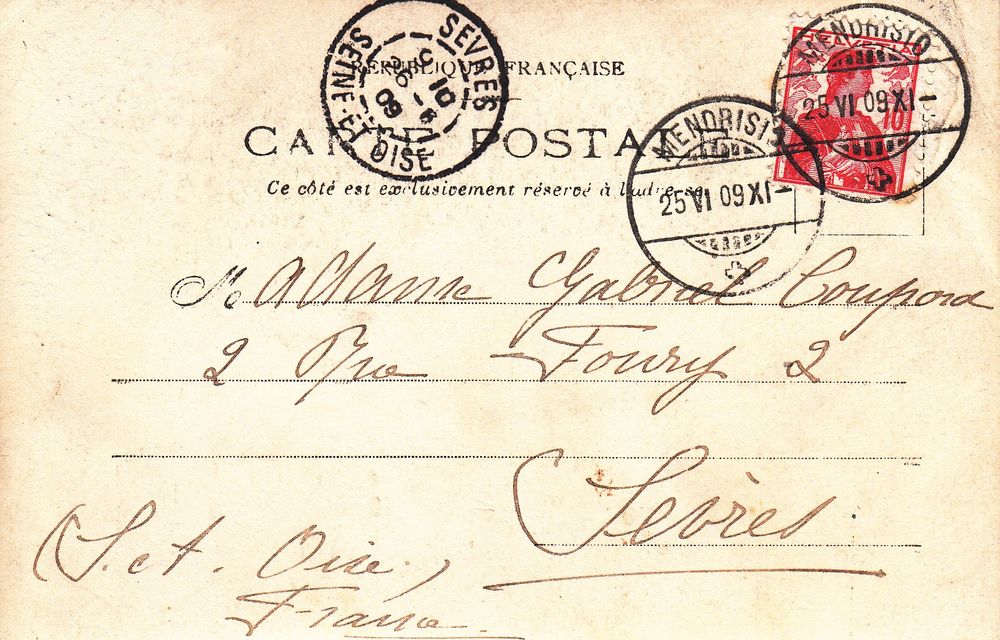 RÉPUBLIQUE FRANÇAISE
CARTE POSTALE
Ce côté est exclusivement réservé à l'adresse
SEVRES
SEINE-ET-OISE
MENDRISIO
25 VI 09 XI-
MENDRISIO
25 VI 09 XI-
HELVETIA
10
Madame Gabriel Coupord
2 Rue Foury 2
Sèvres
(S. et. Oise.)
France